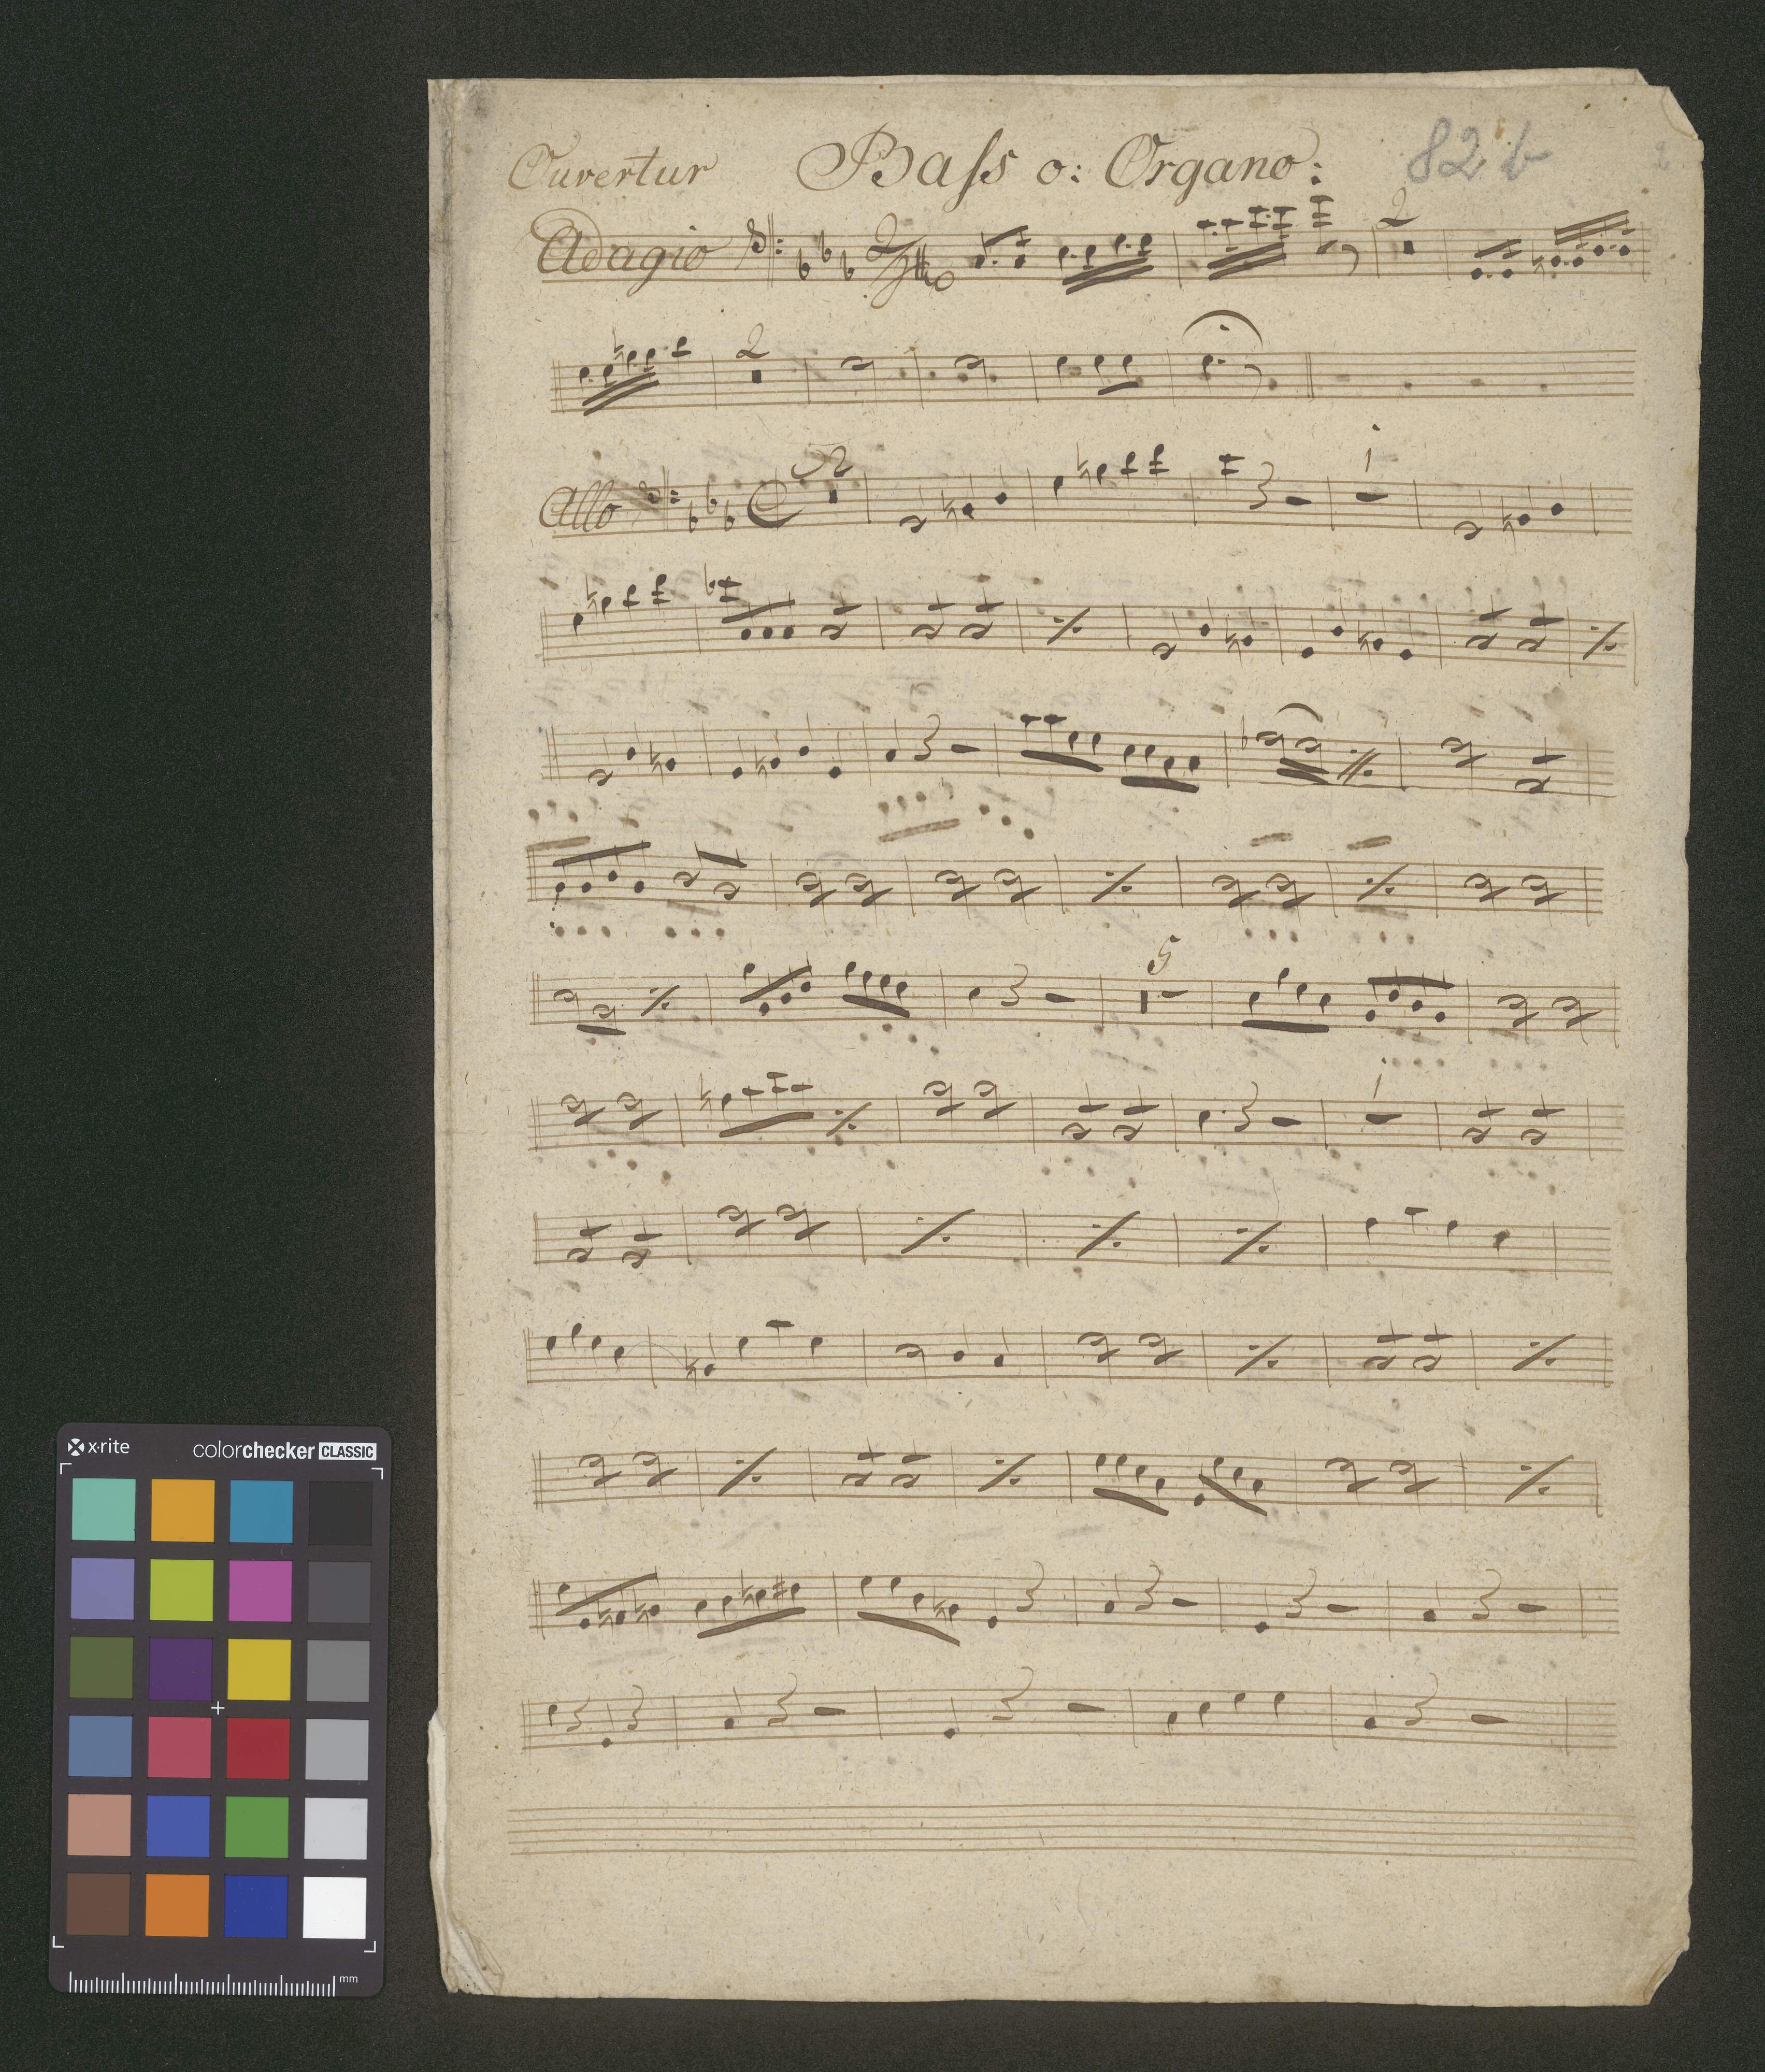 Ouvertur Baſs o: Organo: 82 b
Adagio 2
2
Allo 52 1
5
1
x·rite colorchecker CLASSIC
mm